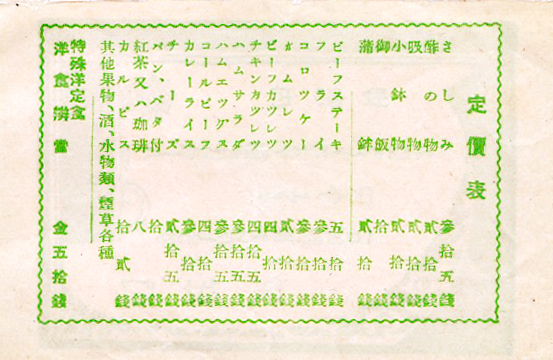 定價表
さしみ 參拾五錢
酢の物 貳拾錢
吸物 貳拾錢
小鉢物 貳拾錢
御飯 拾錢
蒲鉾 貳拾錢
ビーフステーキ 五拾錢
フライ 參拾錢
コロツケー 參拾錢
オムレツ 貳拾錢
ビーフカツレツ 四拾錢
チキンカツレツ 四拾五錢
ハムサラダ 參拾五錢
ハムエツグス 參拾五錢
コールビーフ 四拾錢
カレーライス 參拾錢
チーズ 貳拾五錢
パン、バタ付 拾錢
紅茶又ハ珈琲 八錢
カルピス 拾貳錢
其他果物、酒、水物類、煙草各種
特殊洋定食
洋食辨當 金五拾錢